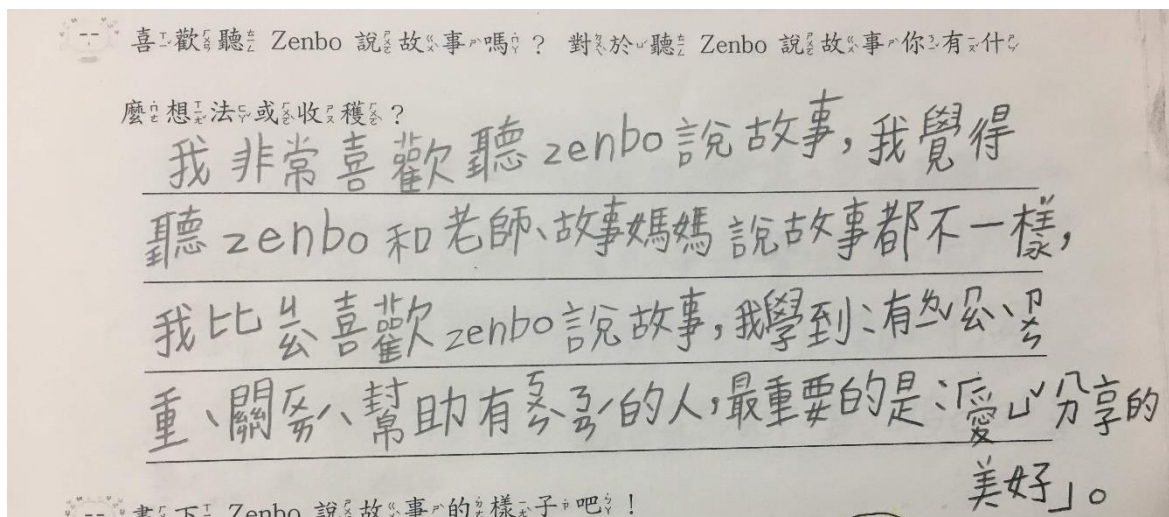 喜歡聽 Zenbo 說故事嗎？ 對於聽 Zenbo 說故事你有什
麼想法或收穫？
我非常喜歡聽zenbo說故事，我覺得
聽zenbo和老師、故事媽媽說故事都不一樣，
我比ㄐㄠ喜歡zenbo說故事，我學到：有
重、關ㄏㄞ、幫助有ㄎㄋ的人，最重要的是：「愛ㄩˇ分享的
美好」。
畫下 Zenbo 說故事的樣子吧！